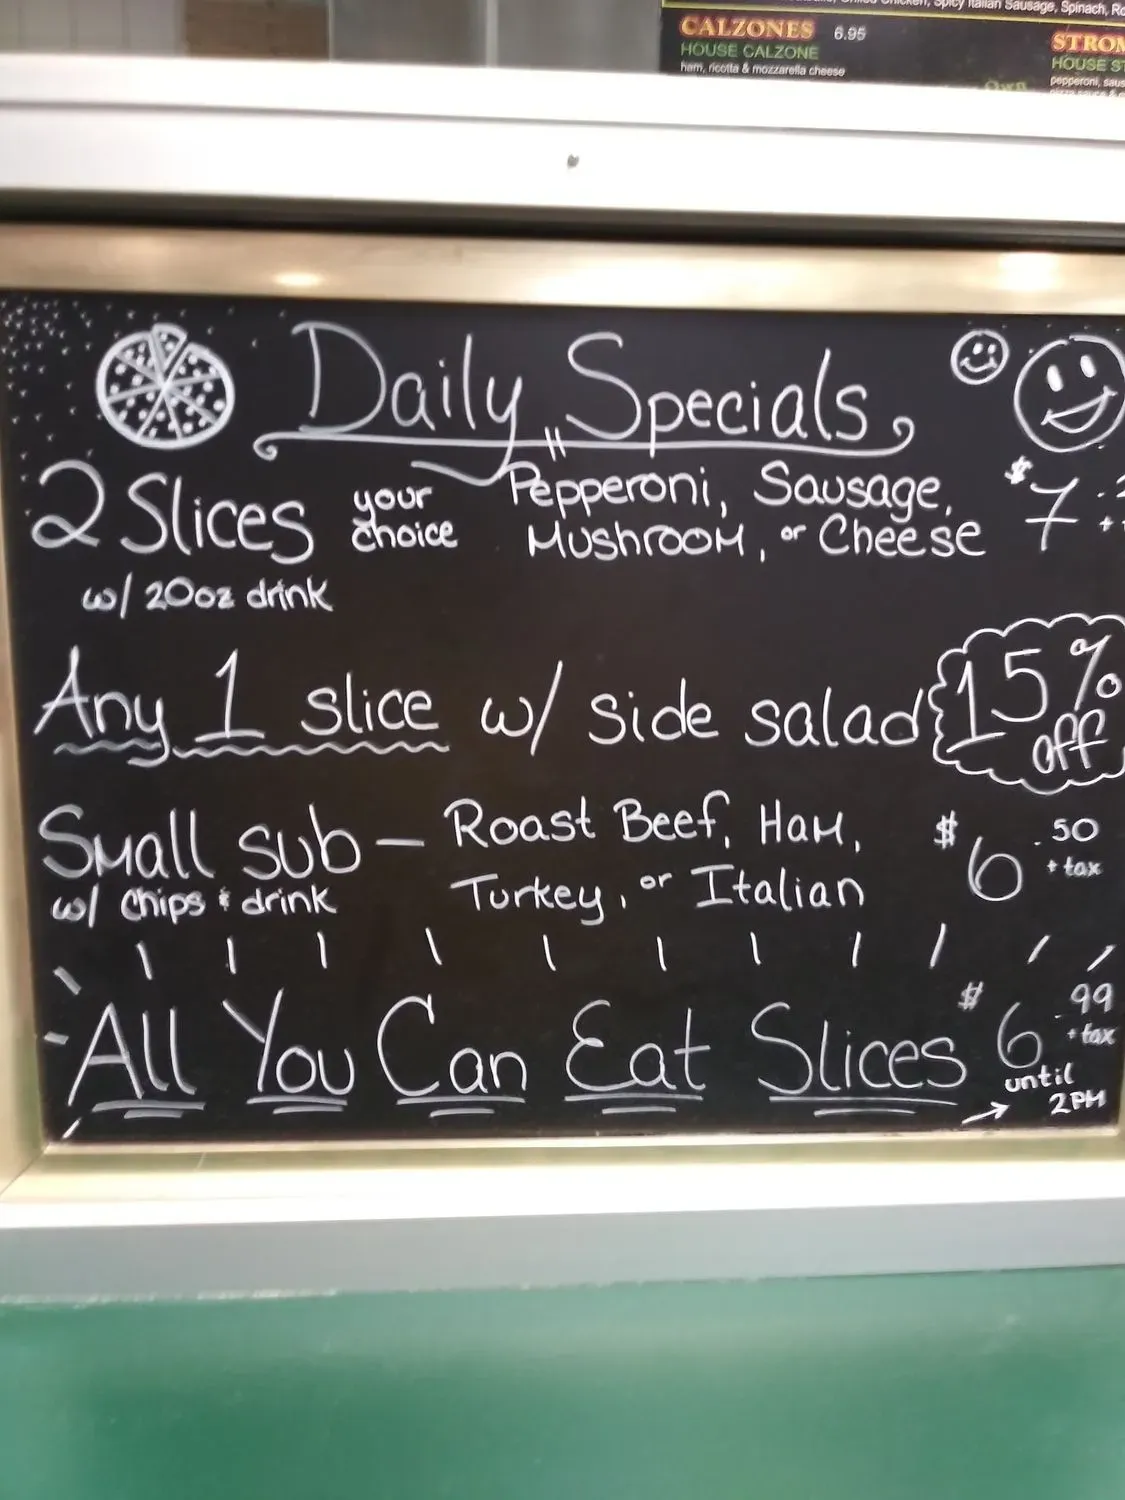 Spicy Italian Sausage, Spinach,
CALZONES 6.95
HOUSE CALZONE
ham, ricotta & mozzarella cheese
Own
HOUSE
pepperoni,
Daily Specials
2 Slices your choice Pepperoni, Sausage, $7
Mushroom, or Cheese
w/ 20oz drink
Any 1 slice w/ side salad 15% off
Small sub – Roast Beef, Ham, $6.50 + tax
w/ chips & drink Turkey, or Italian
All You Can Eat Slices $6.99 + tax
until
2PM